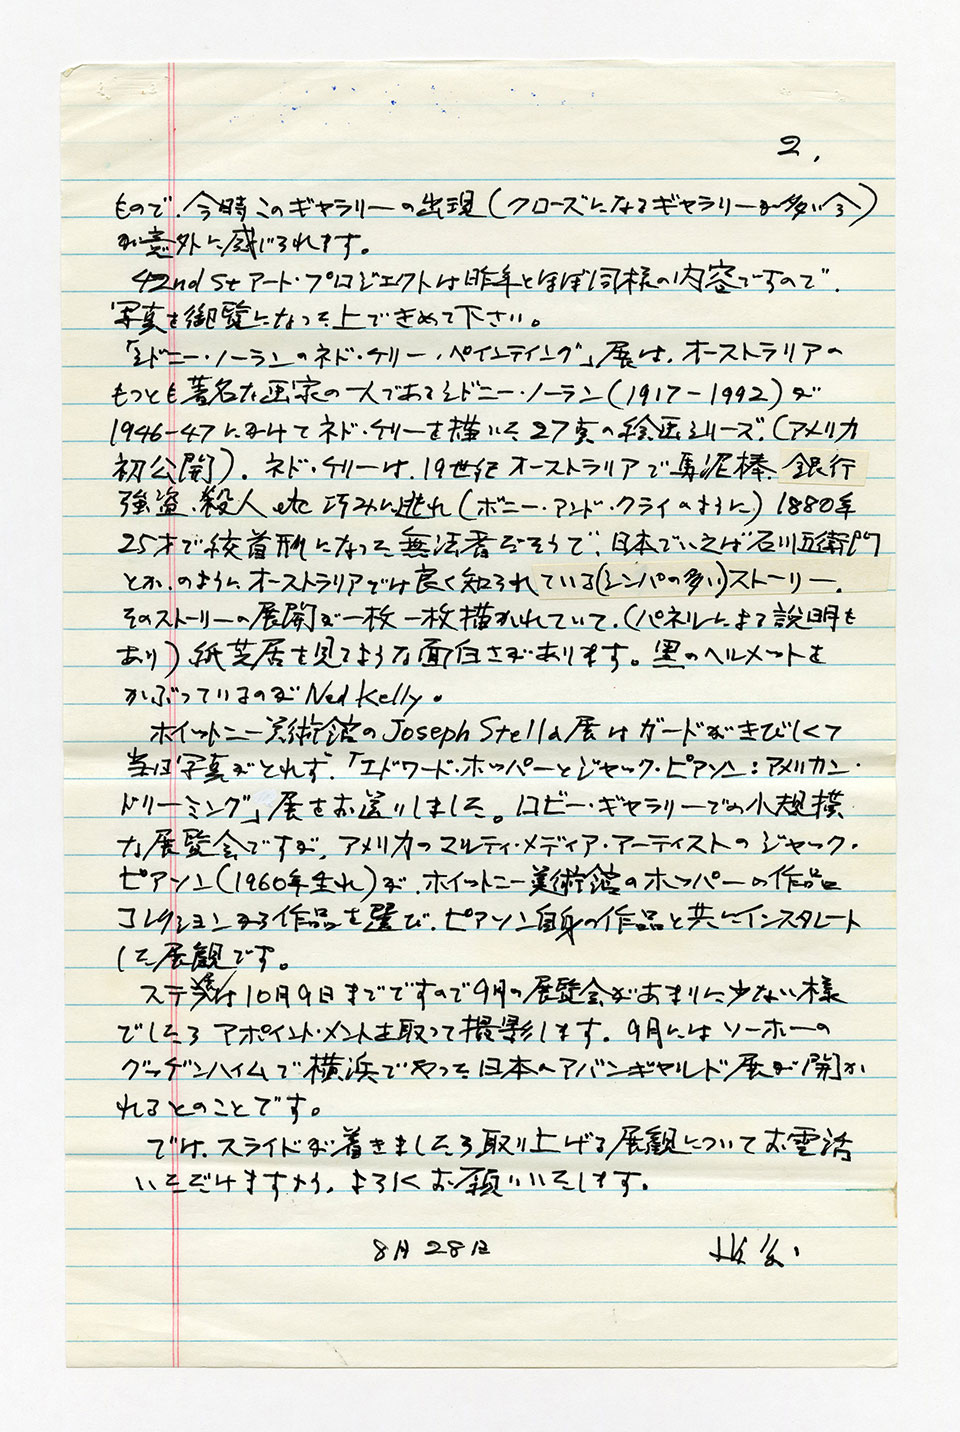 2.
もので、今時このギャラリーの出現(クローズになるギャラリーが多い今)
が意外に感じられます。
42nd St アート・プロジェクトは昨年とほぼ同様の内容ですので、
写真を御覧になった上できめて下さい。
「シドニー・ノーランのネド・ケリー・ペインティング」展は、オーストラリアの
もっとも著名な画家の一人であるシドニー・ノーラン(1917-1992)が
1946-47にかけてネド・ケリーを描いた27点の絵画シリーズ。(アメリカ
初公開)。ネド・ケリーは、19世紀オーストラリアで馬泥棒、銀行
強盗、殺人 etc 巧みに逃れ(ボニー・アンド・クライのように)1880年
25才で絞首刑になった無法者だそうで、日本でいえば石川五衛門
とか、のようにオーストラリアでは良く知られている(シンパの多い)ストーリー。
そのストーリーの展開が一枚一枚描かれていて、(パネルによる説明も
あり)紙芝居を見るような面白さがあります。黒のヘルメットを
かぶっているのが Ned Kelly。
ホイットニー美術館の Joseph Stella 展はガードがきびしくて
写真がとれず、「エドワード・ホッパーとジャック・ピアソン:アメリカン・
ドリーミング」展をお送りしました。ロビー・ギャラリーでの小規模
な展覧会ですが、アメリカのマルティ・メディア・アーティストのジャック・
ピアソン(1960年生れ)が、ホイットニー美術館のホッパーの作品
コレクションから作品を選び、ピアソン自身の作品と共にインスタレート
した展観です。
ステラは10月9日までですので9月の展覧会があまりに少ない様
でしたらアポイント・メントを取って撮影します。9月にはソーホーの
グッゲンハイムで横浜でやった日本のアバンギャルド展が開か
れるとのことです。
では、スライドが着きましたら取り上げる展観についてお電話
いただけますよう、よろしくお願いいたします。
8月28日